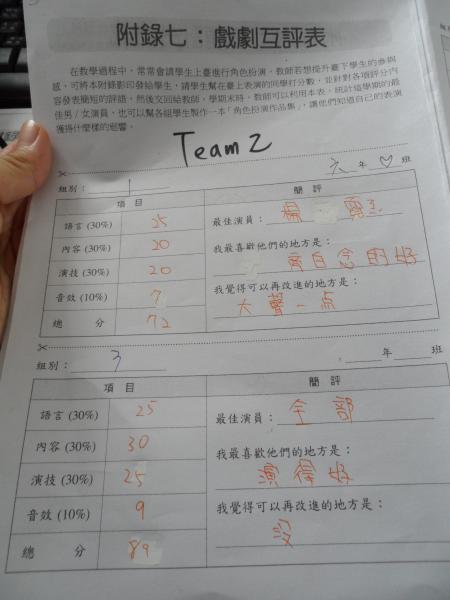 附錄七：戲劇互評表
在教學過程中，常常會請學生上臺進行角色扮演，教師若想提升臺下學生的參與
感，可將本附錄影印發給學生，請學生幫在臺上表演的同學打分數，並針對各項評分內
容發表簡短的評語，然後交回給教師。學期末時，教師可以利用本表，統計這學期的最
佳男/女演員，也可以幫各組學生製作一本「角色扮演作品集」，讓他們知道自己的表演
獲得什麼樣的迴響。
Team 2
組別：1 六年♡班
項目 簡評
語言 (30%) 25 最佳演員：楊
內容 (30%) 20 我最喜歡他們的地方是：
演技 (30%) 20 旁白念的好
音效 (10%) 7 我覺得可以再改進的地方是：
總分 72 大聲一点
組別：3 年 班
項目 簡評
語言 (30%) 25 最佳演員：全部
內容 (30%) 30 我最喜歡他們的地方是：
演技 (30%) 25 演得好
音效 (10%) 9 我覺得可以再改進的地方是：
總分 89 沒